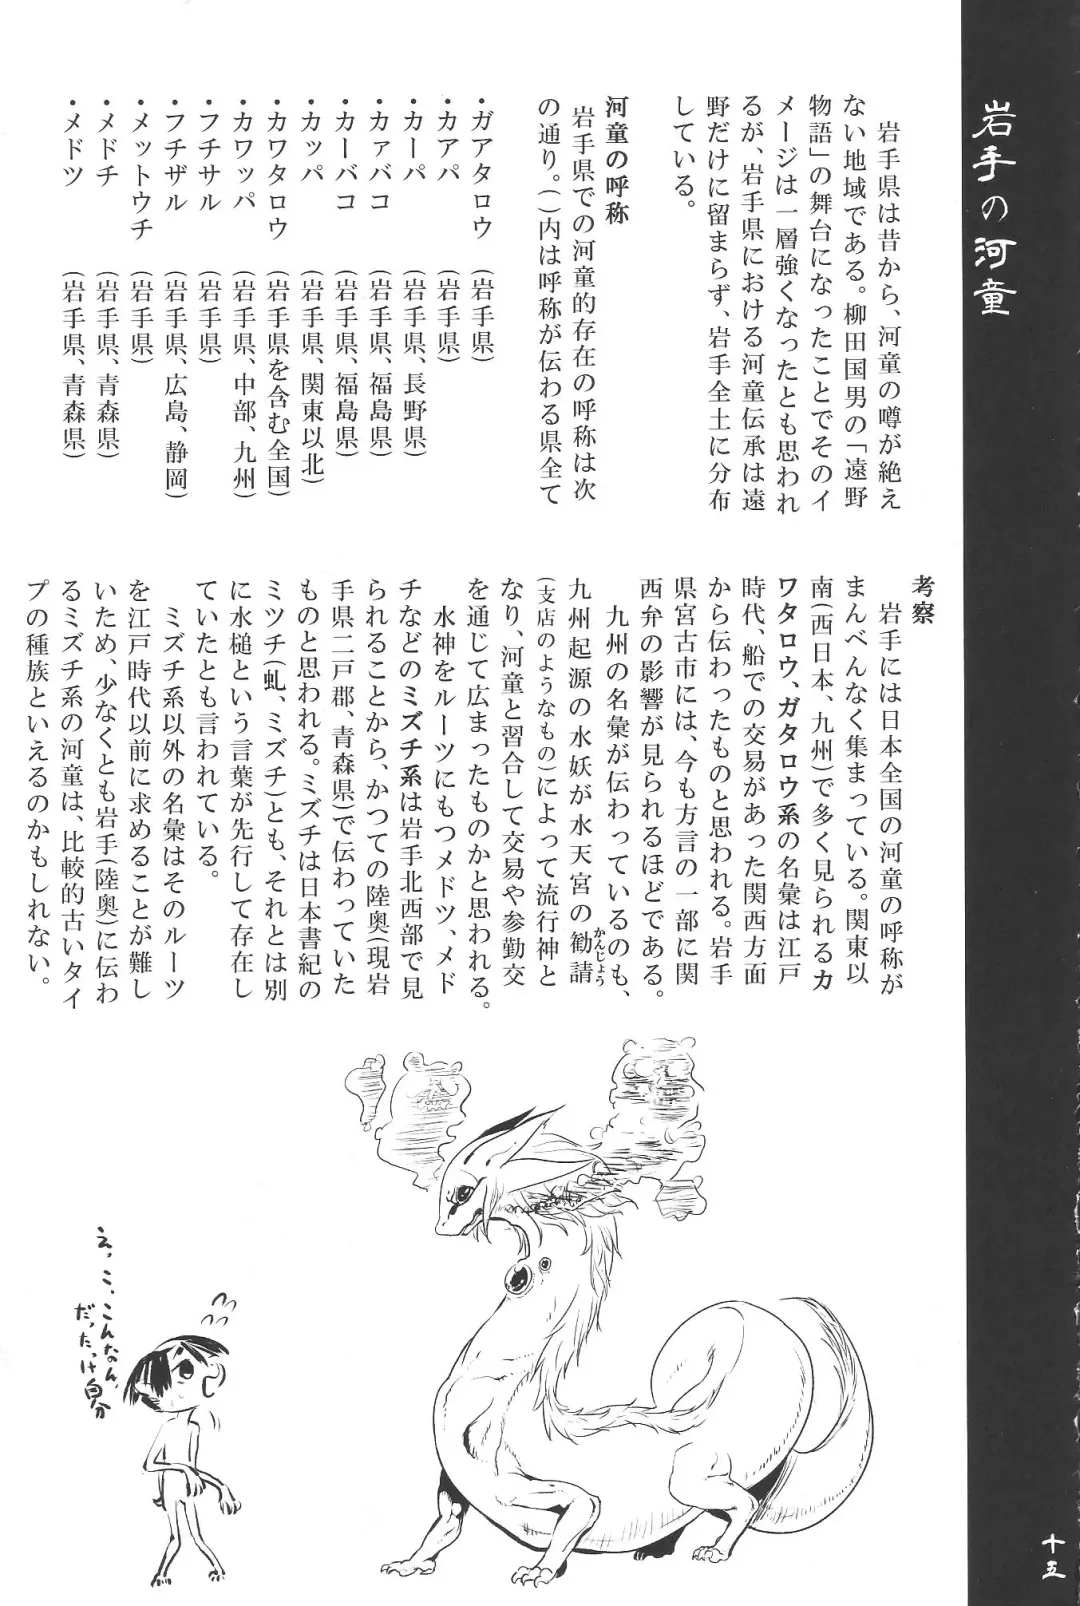 岩手の河童
岩手県は昔から、河童の噂が絶え
ない地域である。柳田国男の「遠野
物語」の舞台になったことでそのイ
メージは一層強くなったとも思われ
るが、岩手県における河童伝承は遠
野だけに留まらず、岩手全土に分布
している。
河童の呼称
岩手県での河童的存在の呼称は次
の通り。()内は呼称が伝わる県全て
・ガアタロウ (岩手県)
・カアパ (岩手県)
・カーパ (岩手県、長野県)
・カァバコ (岩手県、福島県)
・カーバコ (岩手県、福島県)
・カッパ (岩手県、関東以北)
・カワタロウ (岩手県を含む全国)
・カワッパ (岩手県、中部、九州)
・フチサル (岩手県)
・フチザル (岩手県、広島、静岡)
・メットウチ (岩手県)
・メドチ (岩手県、青森県)
・メドツ (岩手県、青森県)
考察
岩手には日本全国の河童の呼称が
まんべんなく集まっている。関東以
南(西日本、九州)で多く見られるカ
ワタロウ、ガタロウ系の名彙は江戸
時代、船での交易があった関西方面
から伝わったものと思われる。岩手
県宮古市には、今も方言の一部に関
西弁の影響が見られるほどである。
九州の名彙が伝わっているのも、
九州起源の水妖が水天宮の勧請
かんじょう
(支店のようなもの)によって流行神と
なり、河童と習合して交易や参勤交
を通じて広まったものかと思われる。
水神をルーツにもつメドツ、メド
チなどのミズチ系は岩手北西部で見
られることから、かつての陸奥(現岩
手県二戸郡、青森県)で伝わっていた
ものと思われる。ミズチは日本書紀の
ミツチ(虬、ミズチ)とも、それとは別
に水槌という言葉が先行して存在し
ていたとも言われている。
ミズチ系以外の名彙はそのルーツ
を江戸時代以前に求めることが難し
いため、少なくとも岩手(陸奥)に伝わ
るミズチ系の河童は、比較的古いタイ
プの種族といえるのかもしれない。
えっ、こ、こんなん
だったっけ自分
十五